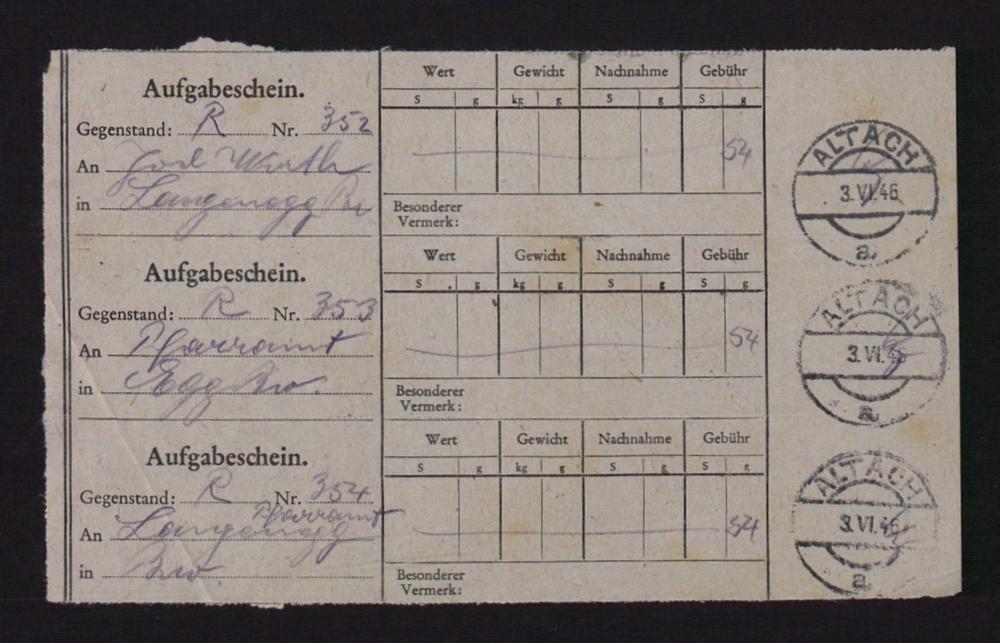 Aufgabeschein.
Gegenstand: R Nr. 352
An Wirth
in Langenegg
Wert Gewicht Nachnahme Gebühr
S g kg g S g S g
54
Besonderer
Vermerk:
ALTACH
3. VI. 46
a
Aufgabeschein.
Gegenstand: R Nr. 353
An Pfarramt
in Egg Brw.
Wert Gewicht Nachnahme Gebühr
S g kg g S g S g
54
Besonderer
Vermerk:
ALTACH
3. VI. 46
a
Aufgabeschein.
Gegenstand: R Nr. 354
Pfarramt
An Langenegg
in Brw
Wert Gewicht Nachnahme Gebühr
S g kg g S g S g
54
Besonderer
Vermerk:
ALTACH
3. VI. 46
a